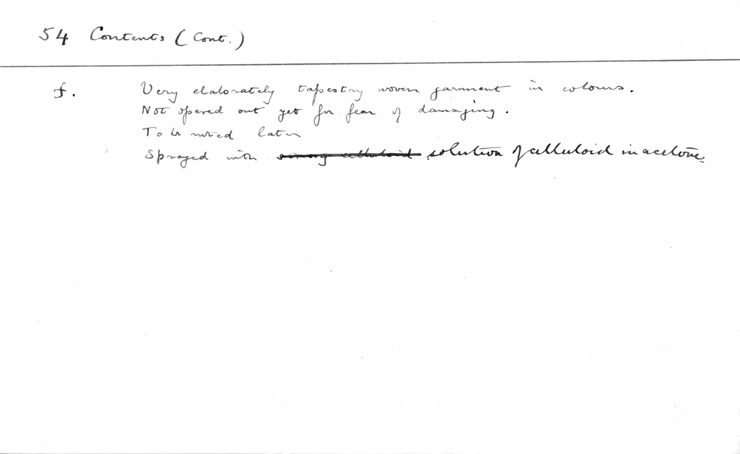 54 Contents (Cont.)
f. Very elaborately tapestry woven garment in colours.
Not opened out yet for fear of damaging.
To be noted later
Sprayed with strong celluloid solution of celluloid in acetone.